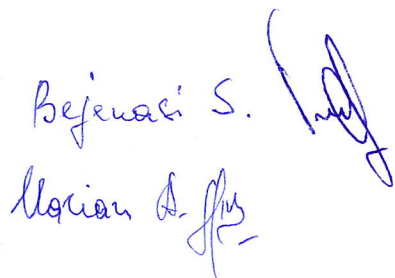 Bejenari S.
Marian A.